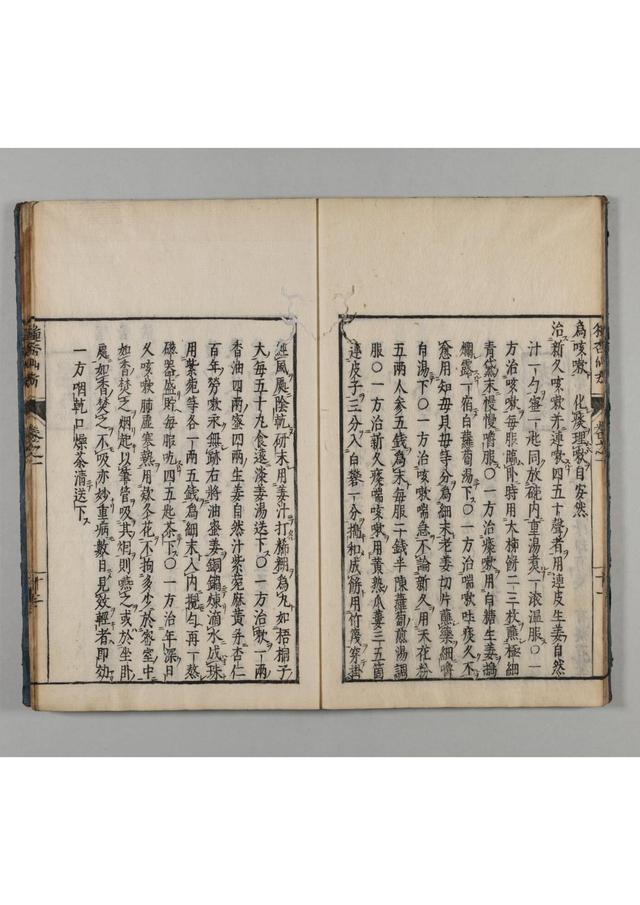 為咳嗽 化痰理嗽自安然
治新久咳嗽并連嗽四五十聲者用連皮生姜自然
汁一勺蜜一匙同放碗内重湯煮一滚温服○一
方治咳嗽毎服臨卧時用大柿餅二三枚蘸極細
青黛末慢慢嚼服○一方治痰嗽用白糖生姜搗
爛露一宿白蘿蔔湯下○一方治喘嗽咳痰久不
愈用知毋貝毋等分為細末老姜切片蘸藥細嚼
白湯下○一方治咳嗽喘急不論新久用天花粉
五兩人参五錢為末毎服二錢半陳蘿蔔煎湯調
服○一方治新久痰喘咳嗽用黄熟瓜蔞三五箇
連皮子三分入白礬一分搗和成餅用竹篾穿掛
迎風處陰乾研末用姜汁打糊為丸如梧桐子
大毎五十丸食遠淡姜湯送下○一方治嗽一兩
香油四兩蜜四兩生姜自然汁紫菀麻黄各杏仁
百年勞嗽永無跡右將油蜜姜銅鍋煉滴水成珠
用紫菀等各一兩五錢為細末入内攪勻再一熬
磁器盛貯毎服四五匙茶下○一方治年深日
久咳嗽肺虚寒熱用欵冬花不拘多少於密室中
如香焚之烟起以筆管吸其烟則嚥之或於坐卧
處如香焚之不吸亦妙重病數日見效輕者即効
一方咽乾口燥茶清送下